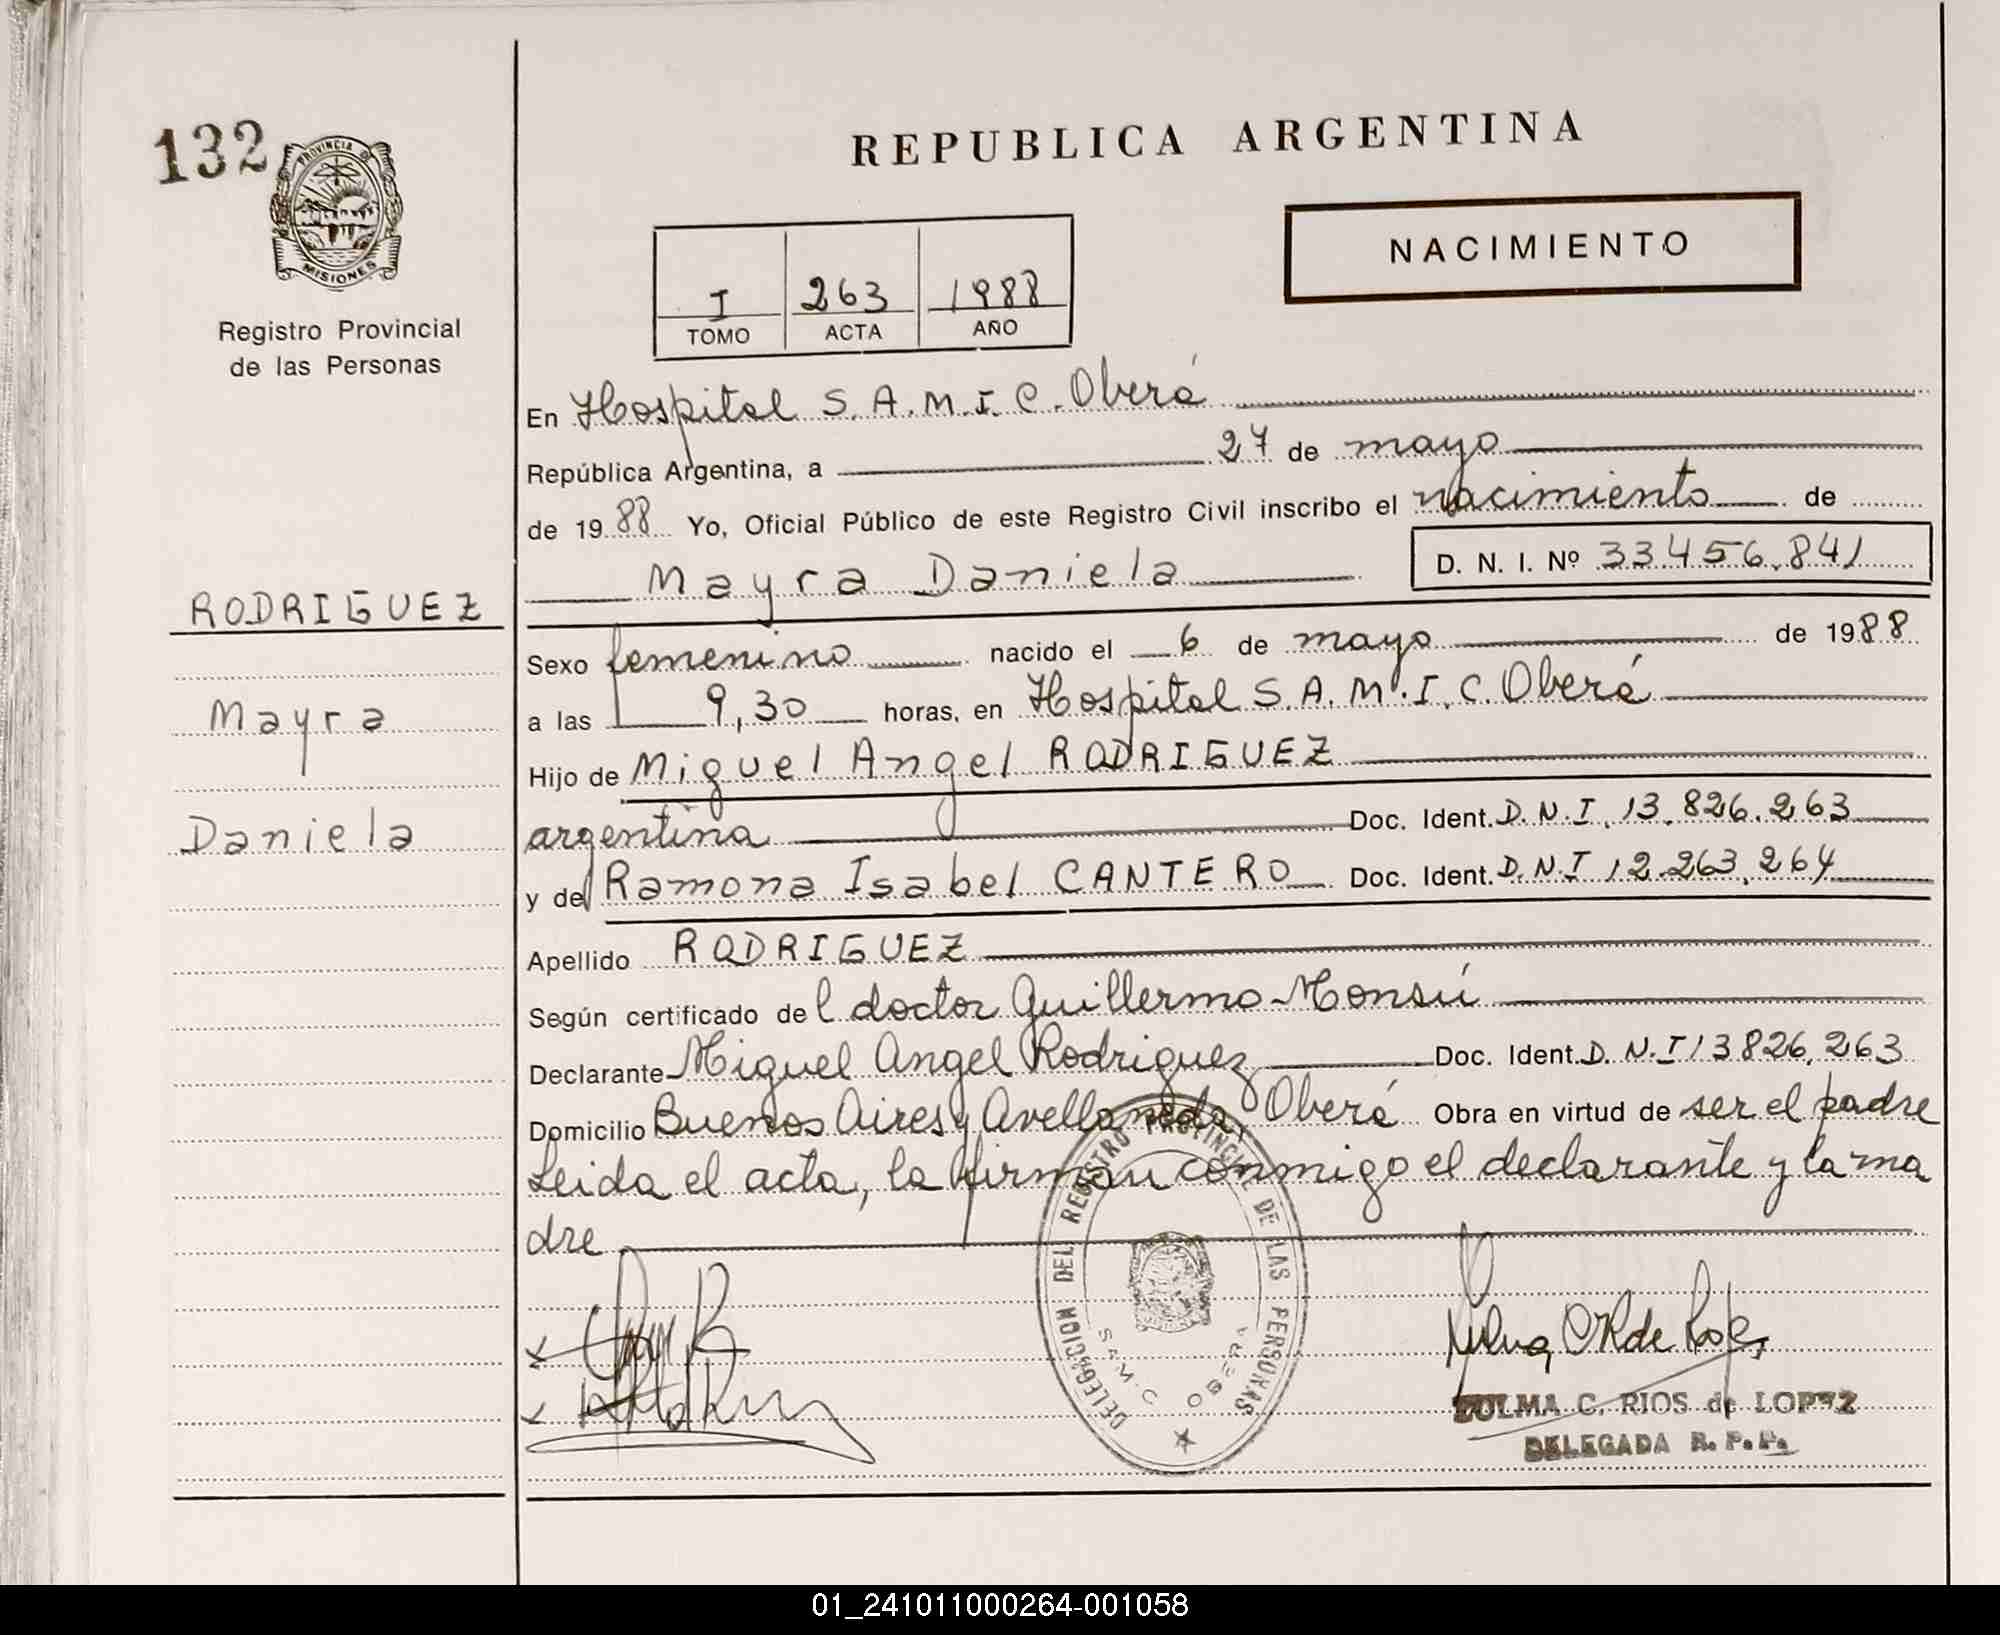 132
PROVINCIA DE
MISIONES
Registro Provincial
de las Personas
RODRIGUEZ
Mayra
Daniela
REPUBLICA ARGENTINA
NACIMIENTO
I 263 1988
TOMO ACTA AÑO
En Hospital S.A.M.I.C. Oberá
República Argentina, a 27 de mayo
de 1988 Yo, Oficial Público de este Registro Civil inscribo el nacimiento de
Mayra Daniela D. N. I. Nº 33.456.841
Sexo femenino nacido el 6 de mayo de 1988
a las 9,30 horas, en Hospital S.A.M.I.C. Oberá
Hijo de Miguel Angel RODRIGUEZ
argentina Doc. Ident. D.N.I. 13.826.263
y de Ramona Isabel CANTERO Doc. Ident. D.N.I 12.263.264
Apellido RODRIGUEZ
Según certificado del doctor Guillermo Monsú
Declarante Miguel Angel Rodriguez Doc. Ident. D.N.I 13826.263
Domicilio Buenos Aires y Avellaneda, Oberá Obra en virtud de ser el padre
Leida el acta, la firman conmigo el declarante y la ma
dre
DELEGACION DEL REGISTRO PROVINCIAL DE LAS PERSONAS
S.A.M.C OBERA
ZULMA C. RIOS de LOPEZ
DELEGADA R. P. P.
01_241011000264-001058